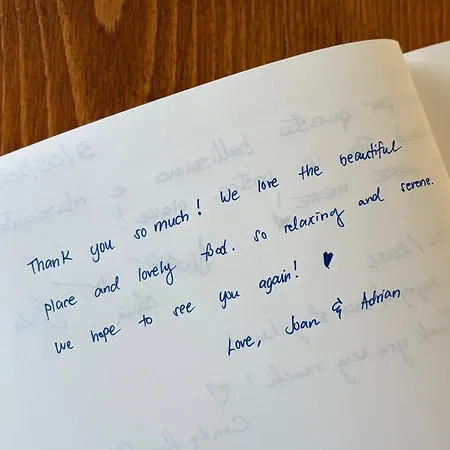 Thank you so much! We love the beautiful
place and lovely food. so relaxing and serene.
We hope to see you again! ♥
Love, Joan & Adrian